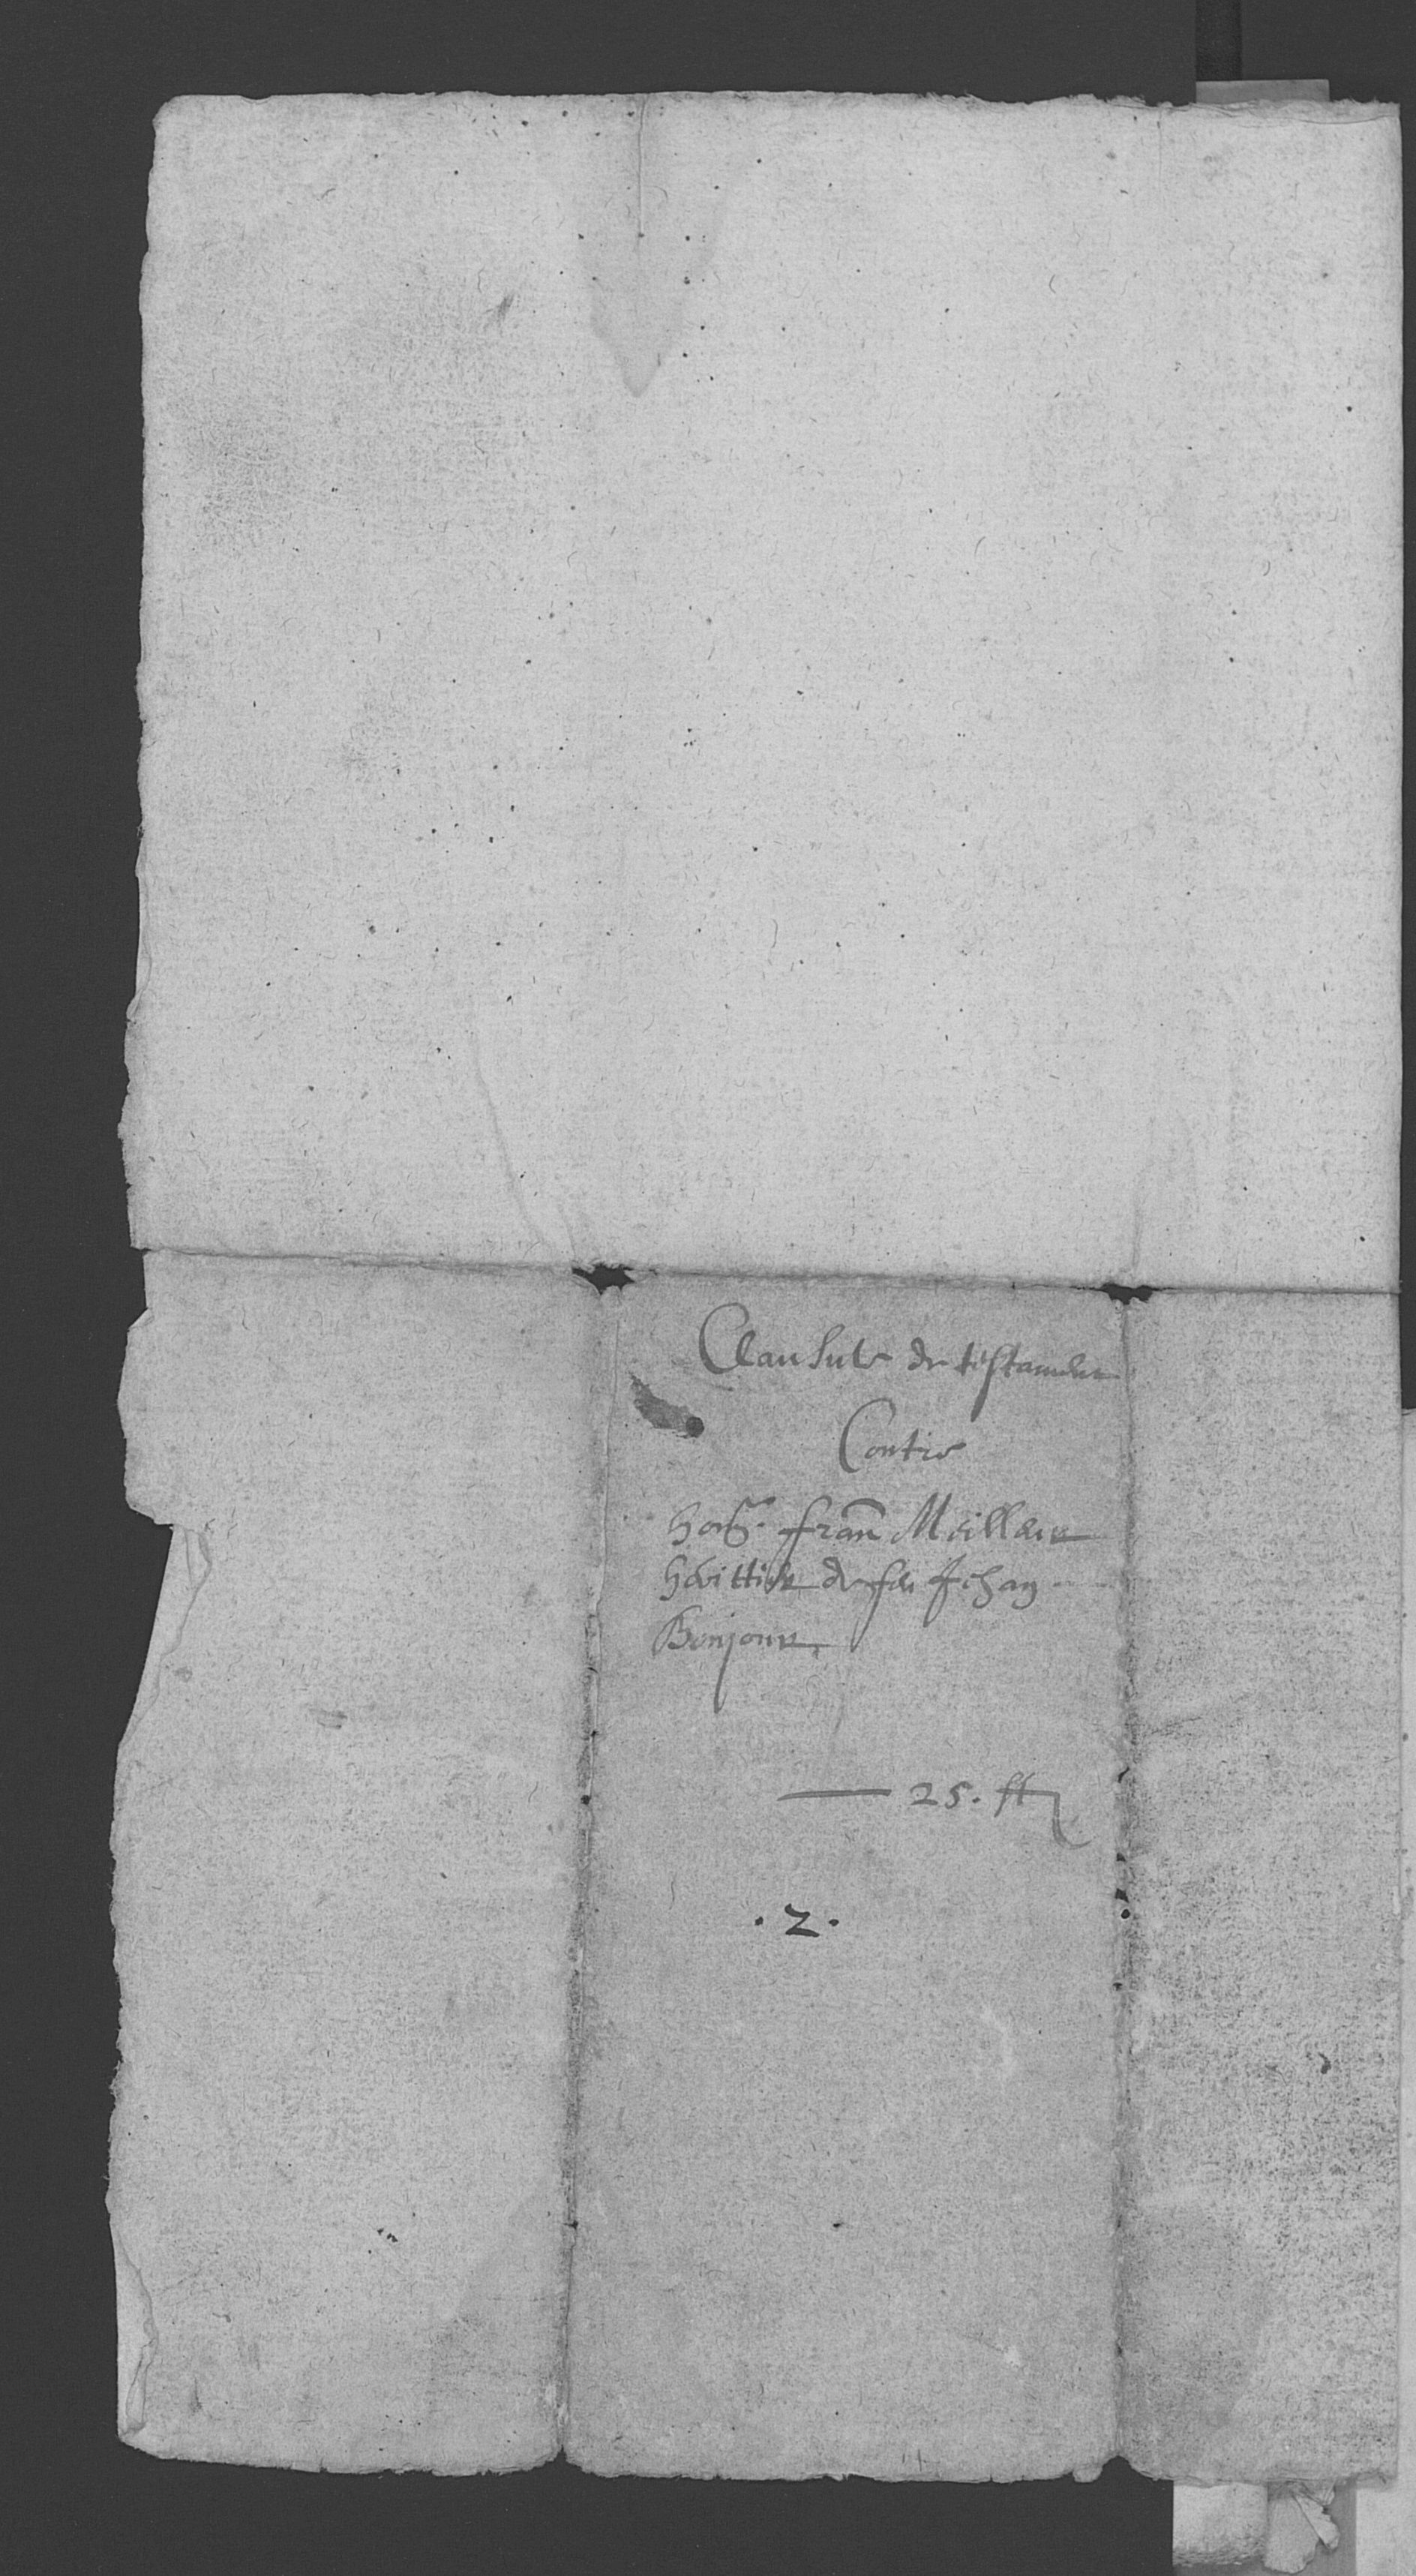 Clausule de testament
Contre
hon. fran Meillaux
heritier de feu Jehan
Bonjour.
25. ff
. 2 .